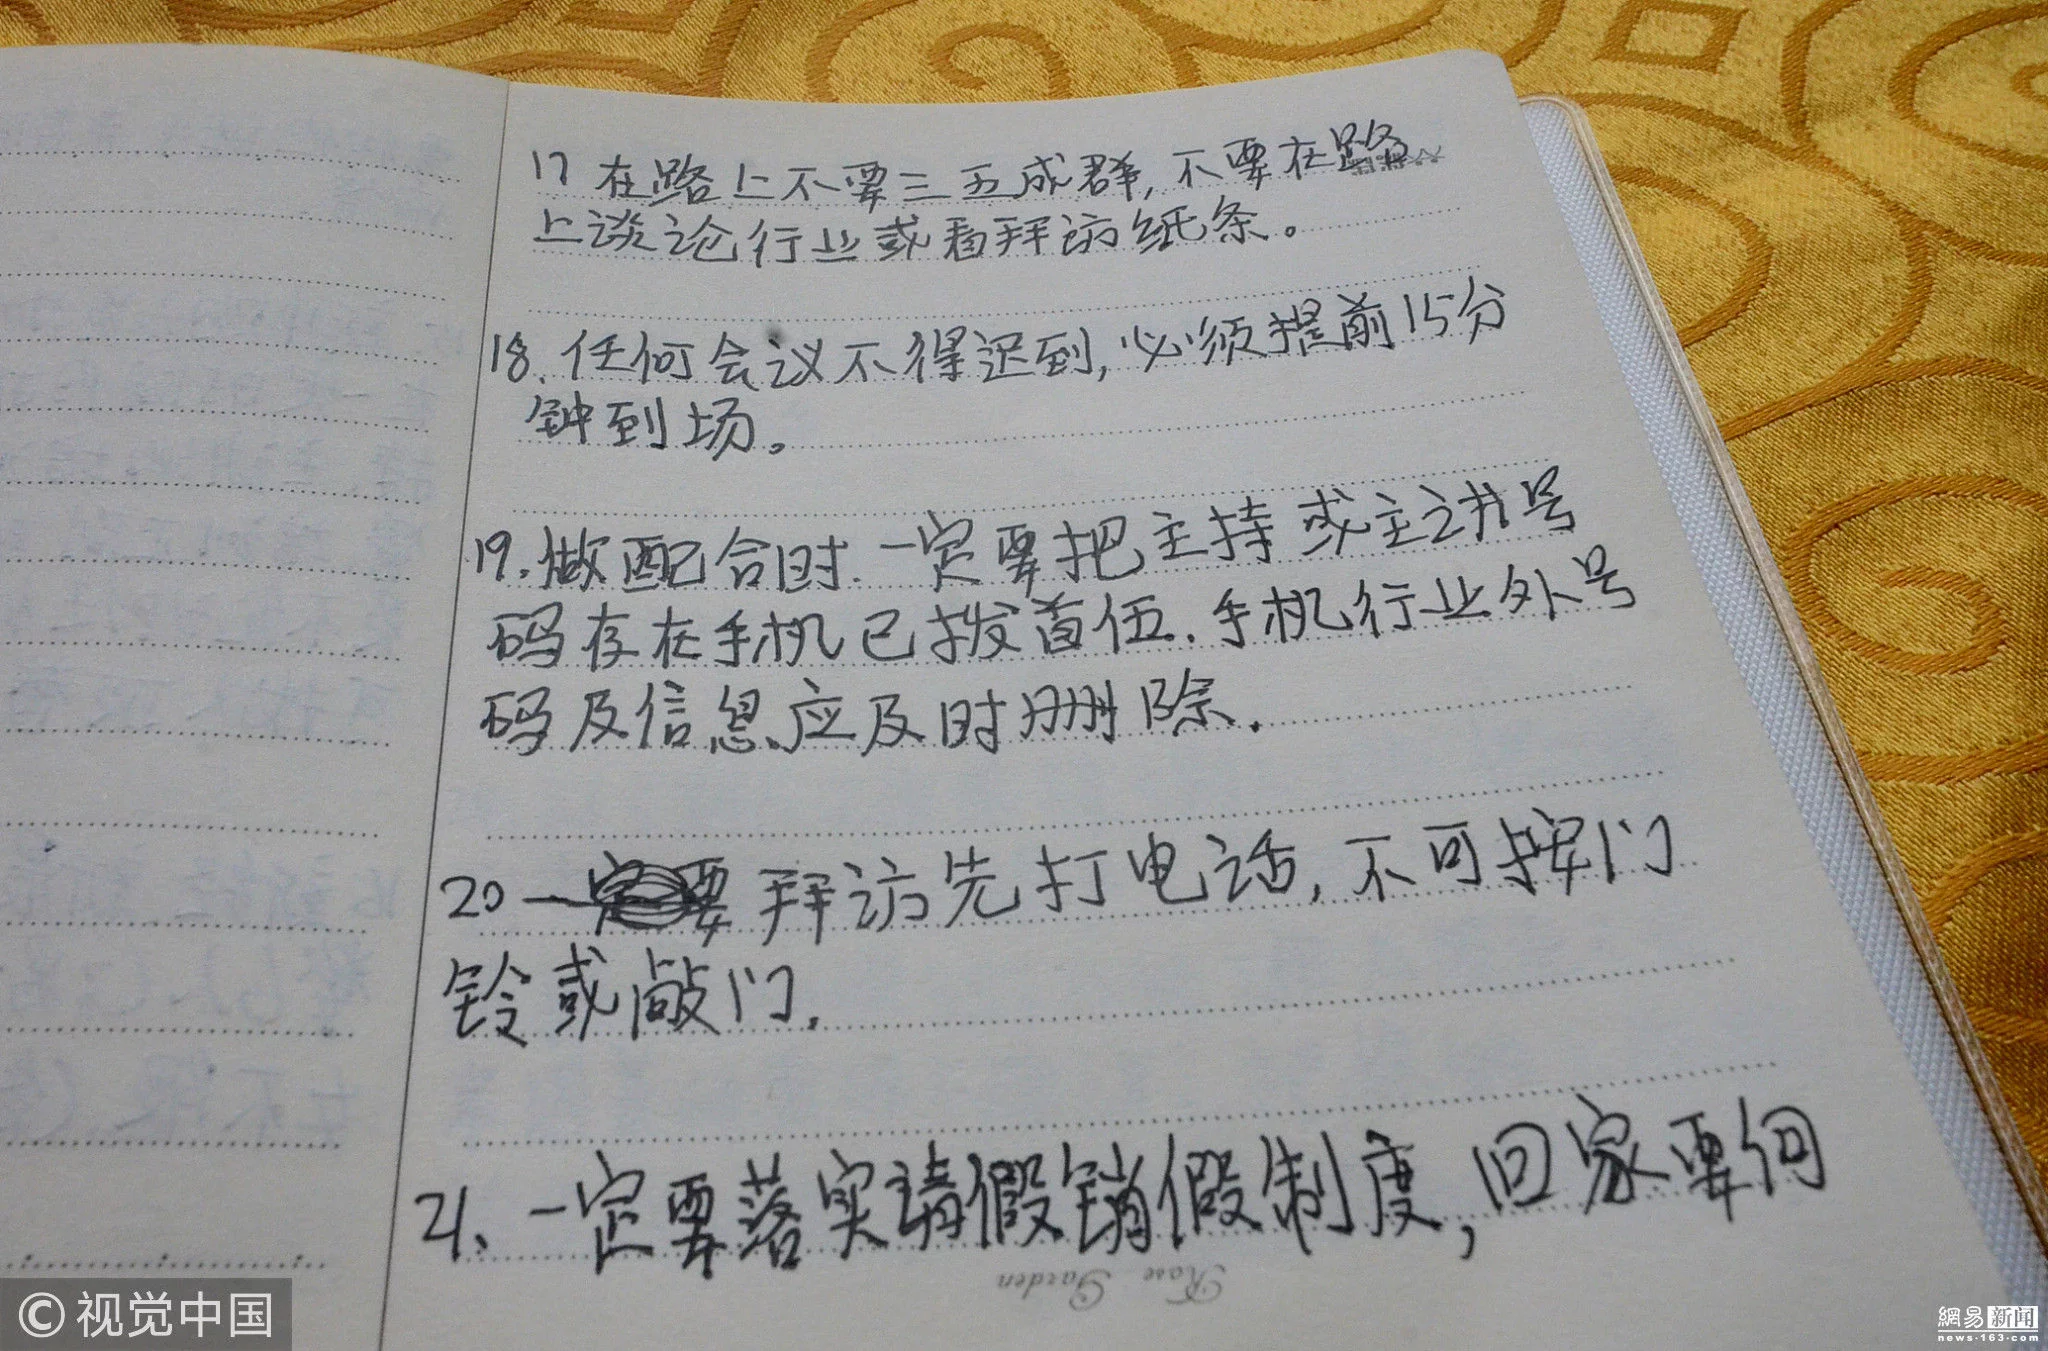 17 在路上不要三五成群,不要在路
上谈论行业或看拜访纸条。
18、任何会议不得迟到,必须提前15分
钟到场。
19.做配合时.一定要把主持或主讲号
码存在手机已拨首位.手机行业外号
码及信息应及时删除.
20 一定要拜访先打电话,不可按门
铃或敲门.
21、一定要落实请假销假制度,回家要向
Rose Garden
©视觉中国
網易新闻
news.163.com